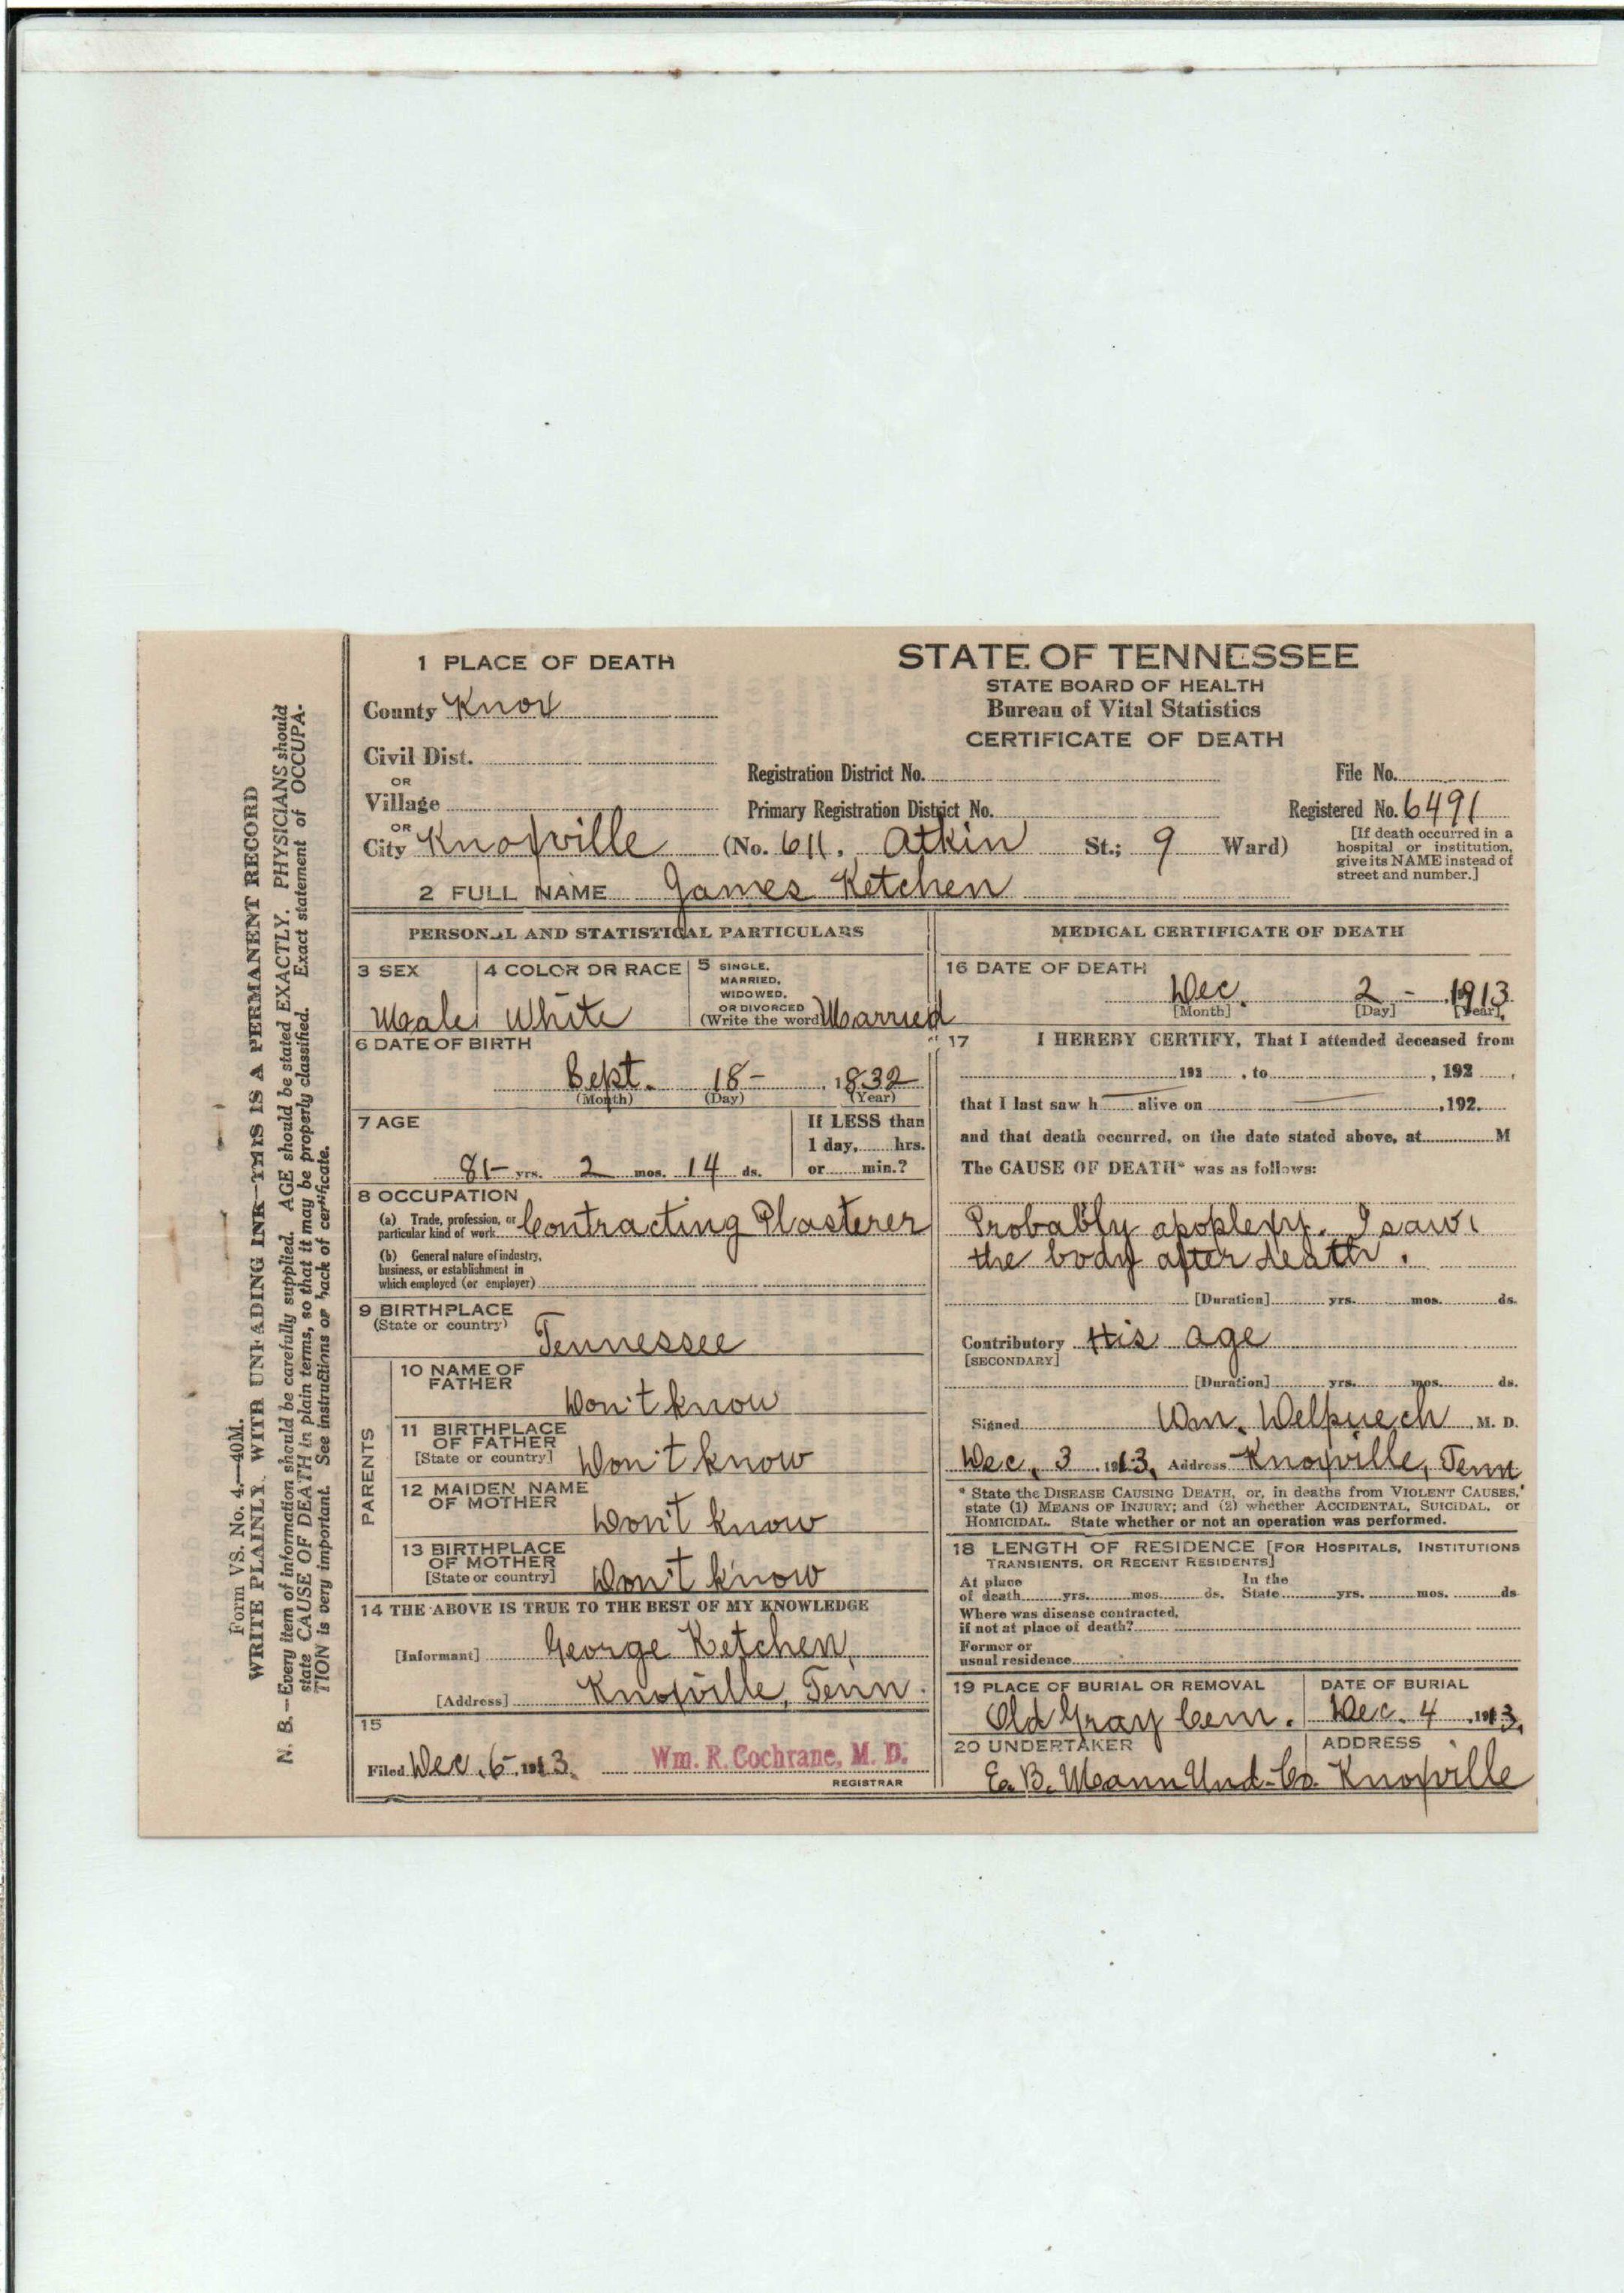 Form VS. No. 4.—40M.
WRITE PLAINLY, WITH UNFADING INK—THIS IS A PERMANENT RECORD
N. B.—Every item of information should be carefully supplied. AGE should be stated EXACTLY. PHYSICIANS should
state CAUSE OF DEATH in plain terms, so that it may be properly classified. Exact statement of OCCUPA-
TION is very important. See instructions on back of certificate.
1 PLACE OF DEATH
County Knox
Civil Dist.
OR
Village
OR
City Knoxville (No. 611, Atkin St.; 9 Ward)
STATE OF TENNESSEE
STATE BOARD OF HEALTH
Bureau of Vital Statistics
CERTIFICATE OF DEATH
Registration District No. File No.
Primary Registration District No. Registered No. 6491
[If death occurred in a
hospital or institution,
give its NAME instead of
street and number.]
2 FULL NAME James Ketchen
PERSONAL AND STATISTICAL PARTICULARS
3 SEX
Male
4 COLOR OR RACE
White
5 SINGLE,
MARRIED,
WIDOWED,
OR DIVORCED
(Write the word) Married
6 DATE OF BIRTH
Sept. 18- , 1832
(Month) (Day) (Year)
7 AGE
81- yrs. 2 mos. 14 ds.
If LESS than
1 day, hrs.
or min.?
8 OCCUPATION
(a) Trade, profession, or
particular kind of work Contracting Plasterer
(b) General nature of industry,
business, or establishment in
which employed (or employer)
9 BIRTHPLACE
(State or country)
Tennessee
PARENTS
10 NAME OF
FATHER
Don't know
11 BIRTHPLACE
OF FATHER
[State or country] Don't know
12 MAIDEN NAME
OF MOTHER
Don't know
13 BIRTHPLACE
OF MOTHER
[State or country] Don't know
14 THE ABOVE IS TRUE TO THE BEST OF MY KNOWLEDGE
[Informant] George Ketchen,
[Address] Knoxville, Tenn.
15
Filed Dec. 6-, 1913. Wm. R. Cochrane, M. D.
REGISTRAR
MEDICAL CERTIFICATE OF DEATH
16 DATE OF DEATH
Dec. 2 - , 1913
[Month] [Day] [Year]
17 I HEREBY CERTIFY, That I attended deceased from
192 , to , 192 ,
that I last saw h alive on , 192.
and that death occurred, on the date stated above, at M
The CAUSE OF DEATH* was as follows:
Probably apoplexy. I saw
the body after death.
[Duration] yrs. mos. ds.
Contributory His age
[SECONDARY]
[Duration] yrs. mos. ds.
Signed Wm. Delpuech M. D.
Dec, 3 1913, Address Knoxville, Tenn
* State the DISEASE CAUSING DEATH, or, in deaths from VIOLENT CAUSES,
state (1) MEANS OF INJURY; and (2) whether ACCIDENTAL, SUICIDAL, or
HOMICIDAL. State whether or not an operation was performed.
18 LENGTH OF RESIDENCE [FOR HOSPITALS, INSTITUTIONS
TRANSIENTS, OR RECENT RESIDENTS]
At place In the
of death yrs. mos. ds. State yrs. mos. ds
Where was disease contracted,
if not at place of death?
Former or
usual residence
19 PLACE OF BURIAL OR REMOVAL
Old Gray Cem.
DATE OF BURIAL
Dec. 4 , 1913,
20 UNDERTAKER
E. B. Mann Und. Co.
ADDRESS
Knoxville